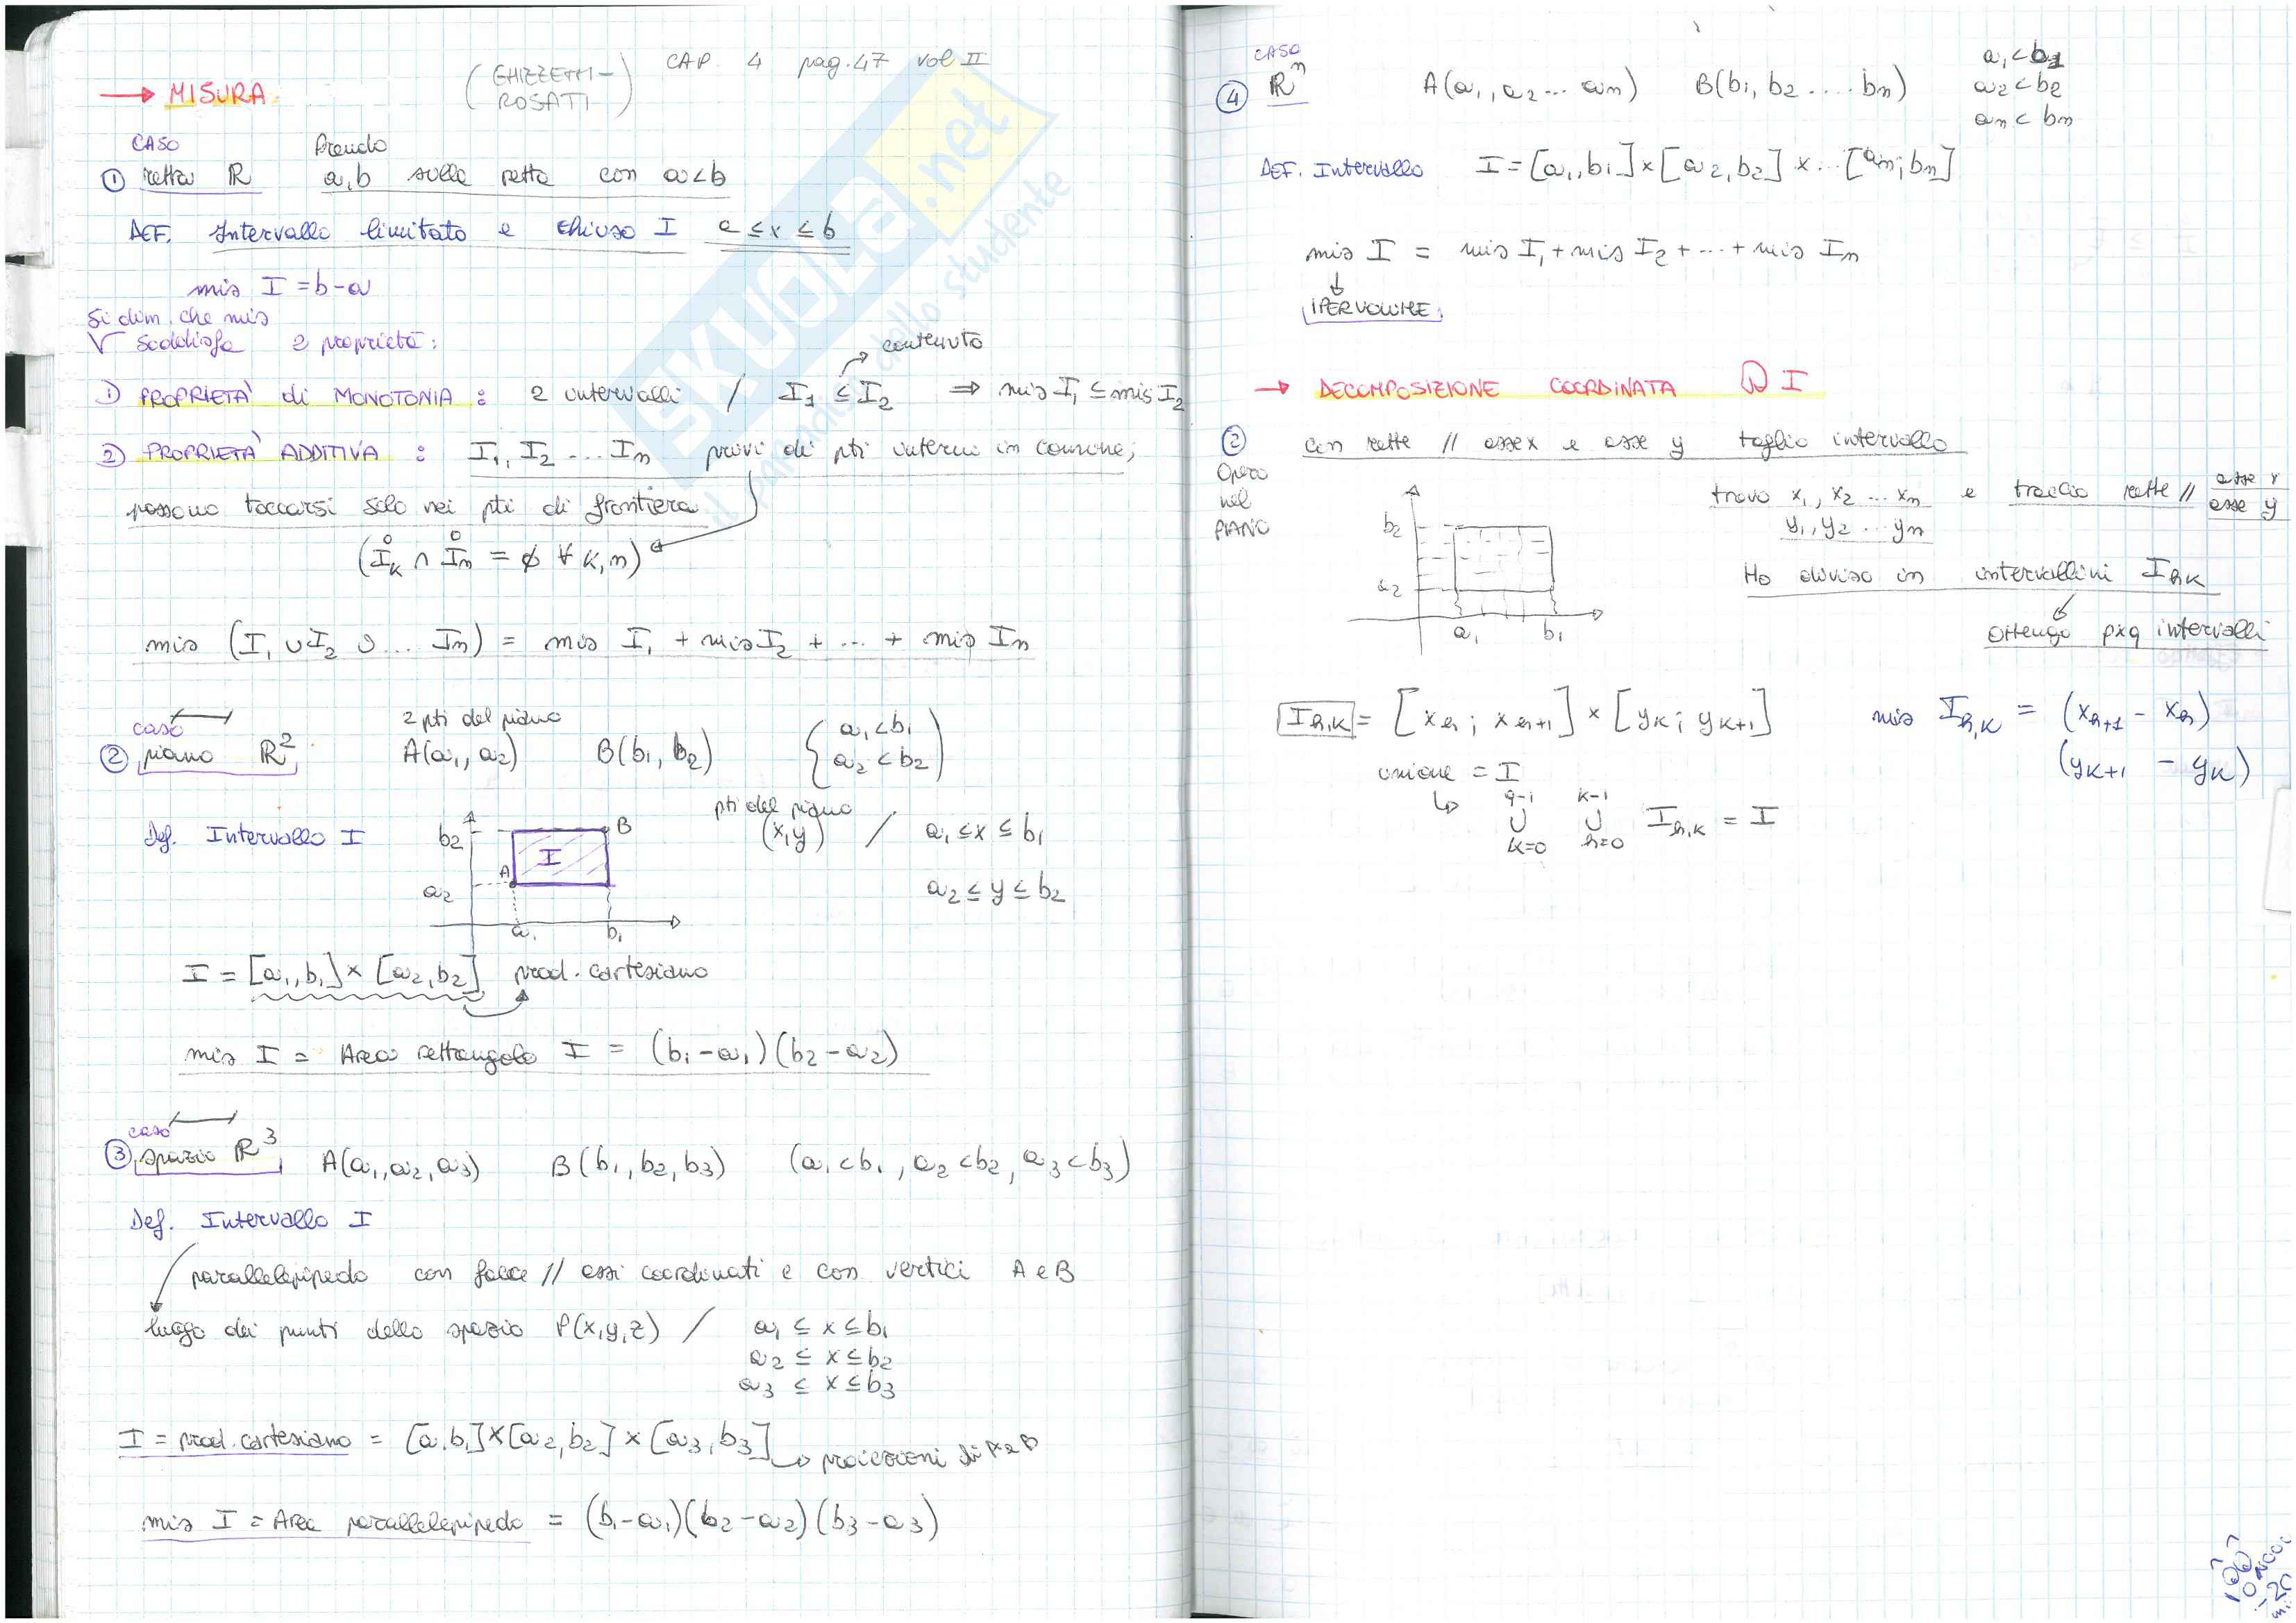 → MISURA
(GHIZZETTI-ROSATI)
CAP. 4 pag.47 vol II
CASO
① retta R
Prendo
a,b sulla retta con a<b
DEF. Intervallo limitato e chiuso I a ≤ x ≤ b
mis I = b-a
Si dim. che mis
soddisfa 2 proprietà:
→ contenuto
1) PROPRIETA' di MONOTONIA : 2 intervalli / I₁ ⊆ I₂ ⇒ mis I₁ ≤ mis I₂
2) PROPRIETA' ADDITIVA : I₁, I₂ ... In privi di pti interni in comune;
possono toccarsi solo nei pti di frontiera
(I̊k ∩ I̊n = ∅ ∀ k,n)
mis (I₁ ∪ I₂ ∪ ... In) = mis I₁ + mis I₂ + ... + mis In
caso
② piano R²
2 pti del piano
A(a₁, a₂) B(b₁, b₂) {a₁<b₁
a₂<b₂)
Def. Intervallo I
b₂
B
I
A
a₂
a₁
b₁
pti del piano
(x,y) / a₁ ≤ x ≤ b₁
a₂ ≤ y ≤ b₂
I = [a₁,b₁] × [a₂,b₂] prod. cartesiano
mis I = Area rettangolo I = (b₁-a₁)(b₂-a₂)
caso
③ spazio R³ A(a₁,a₂,a₃) B(b₁,b₂,b₃) (a₁<b₁, a₂<b₂, a₃<b₃)
Def. Intervallo I
parallelepipedo con facce // assi coordinati e con vertici A e B
luogo dei punti dello spazio P(x,y,z) / a₁ ≤ x ≤ b₁
a₂ ≤ x ≤ b₂
a₃ ≤ x ≤ b₃
I = prod. cartesiano = [a₁b₁]×[a₂,b₂]×[a₃,b₃] → proiezioni di A e B
mis I = Area parallelepipedo = (b₁-a₁)(b₂-a₂)(b₃-a₃)
CASO
④ Rⁿ A(a₁,a₂...an) B(b₁,b₂....bn)
a₁<b₁
a₂<b₂
an<bn
DEF. Intervallo I = [a₁,b₁]×[a₂,b₂]×...[an;bn]
mis I = mis I₁ + mis I₂ + ... + mis In
↓
IPERVOLUME
→ DECOMPOSIZIONE COORDINATA DI I
② con rette // asse x e asse y taglio intervallo
Opero
nel
PIANO
b₂
a₂
a₁
b₁
trovo x₁, x₂ ... xn e traccio rette // asse x
y₁, y₂ ... yn
asse y
Ho diviso in intervallini Ihk
ottengo p×q intervalli
Ih,k = [xh ; xh+1] × [yk ; yk+1]
mis Ih,k = (xh+1 - xh)
(yk+1 - yk)
unione = I
↳ q-1 ∪ k=0 k-1 ∪ h=0 Ih,k = I
SKUOLA.net
il paradiso dello studente